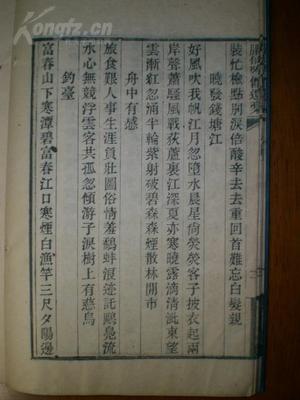 裝忙檢點別淚倍酸辛去去重回首難忘白髮親
曉發錢塘江
好風吹我帆江月忽墮水晨星尚熒熒客子披衣起兩
岸聲蕭騷風戰荻蘆裏江深夏亦寒曉露滴清泚東望
雲漸紅忽涌半輪紫射破碧森森煙散林開市
舟中有感
旅食艱人事生涯負壯圖俗情羞鷸蚌浪迹託鷗鳧流
水心無競浮雲客共孤忽傾游子淚樹上有慈烏
釣臺
富春山下寒潭碧富春江口寒煙白漁竿三尺夕陽邊